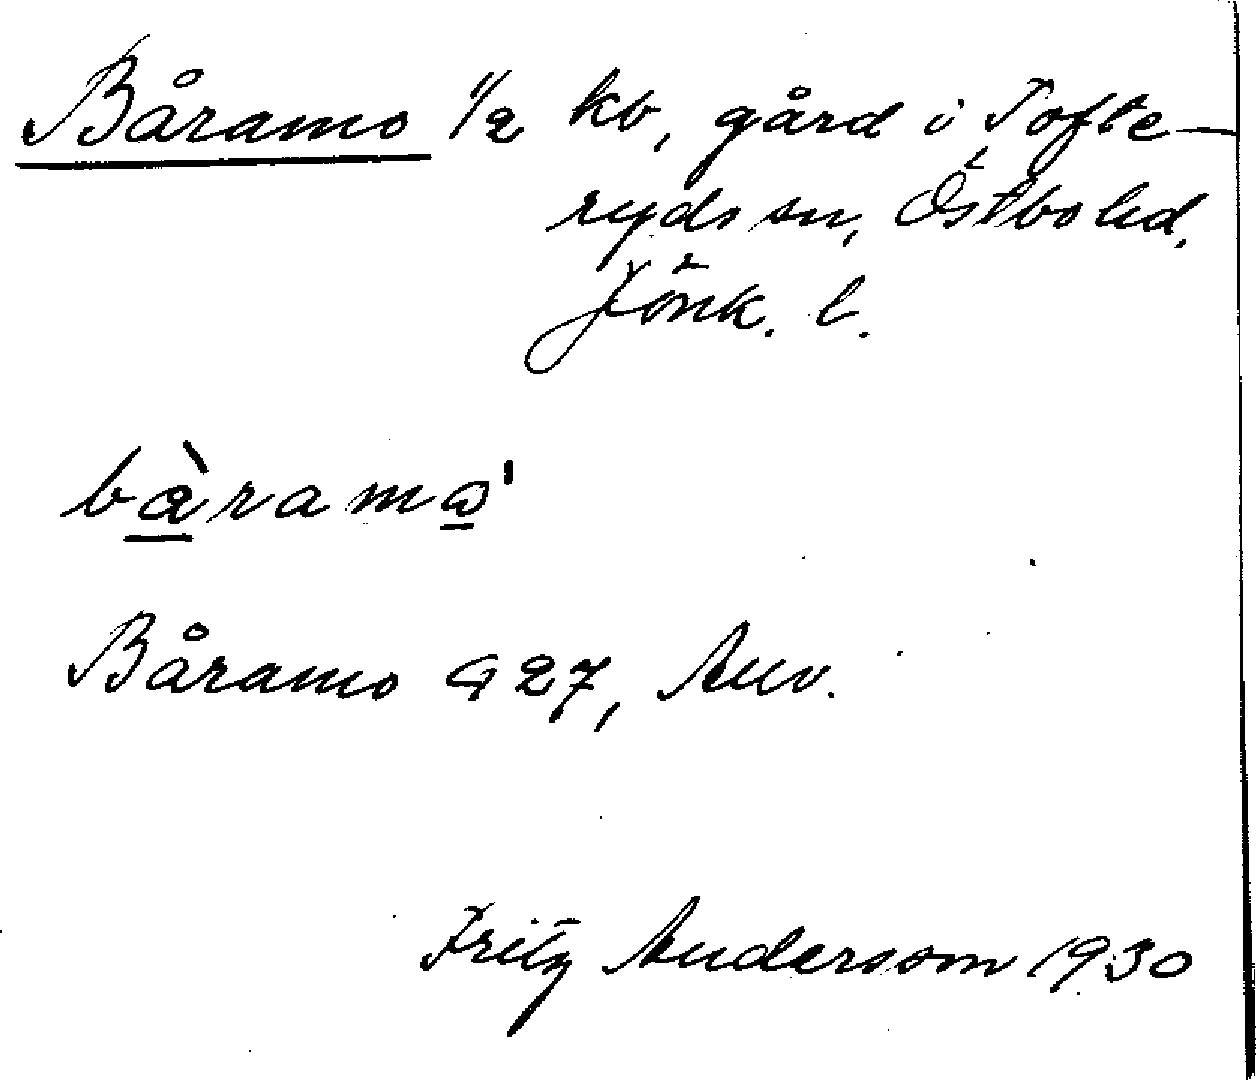 Båramo 1/2 kb, gård i Tofte-
ryds sn, Östbo hd,
Jönk. l.
bàrama'
Båramo G 27, Anv.
Fritz Andersson 1930